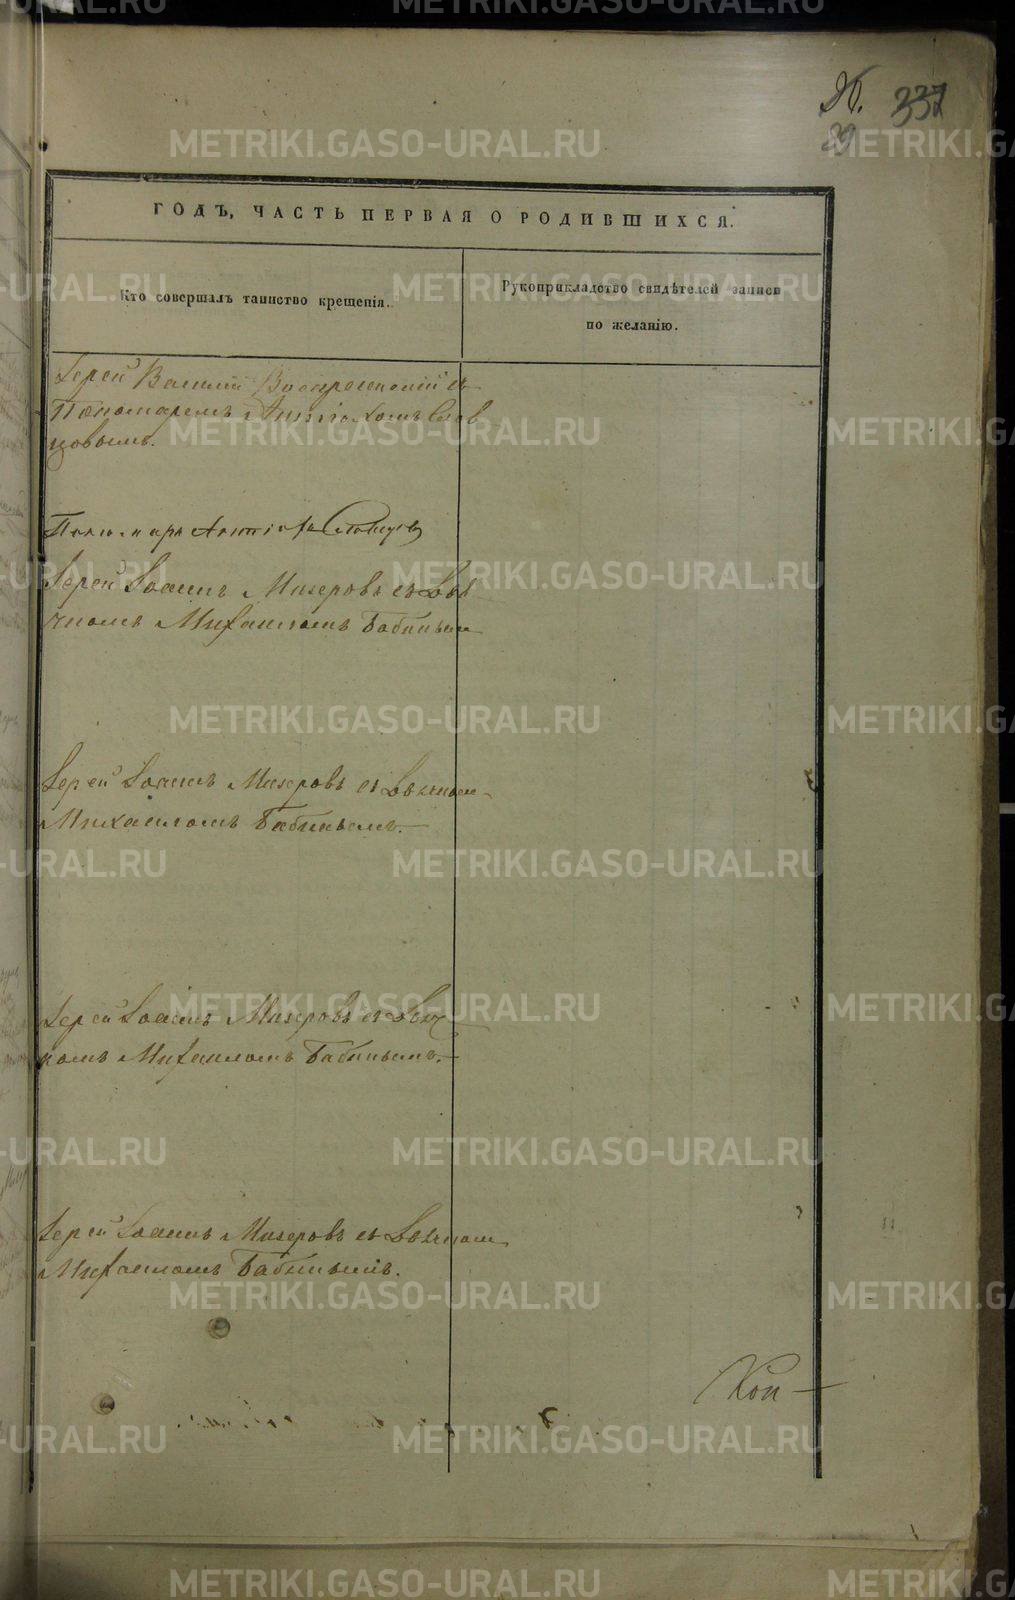 337
29
ГОДЪ, ЧАСТЬ ПЕРВАЯ О РОДИВШИХСЯ.
Кто совершалъ таинство крещенія.
Рукоприкладство свидѣтелей записи
по желанію.
Іерей Василій Воскресенскій съ
Пономаремъ Антіохомъ Слов
цовымъ.
Пономарь Антіохъ Словцовъ
Іерей Іоаннъ Мизеровъ съ Дья
чкомъ Михаиломъ Бабинымъ
Іерей Іоаннъ Мизеровъ съ Дьячкомъ
Михаиломъ Бабинымъ.
Іерей Іоаннъ Мизеровъ съ Дьяч
комъ Михаиломъ Бабинымъ.
Іерей Іоаннъ Мизеровъ съ Дьячкомъ
Михаиломъ Бабинымъ.
Коп-
METRIKI.GASO-URAL.RU